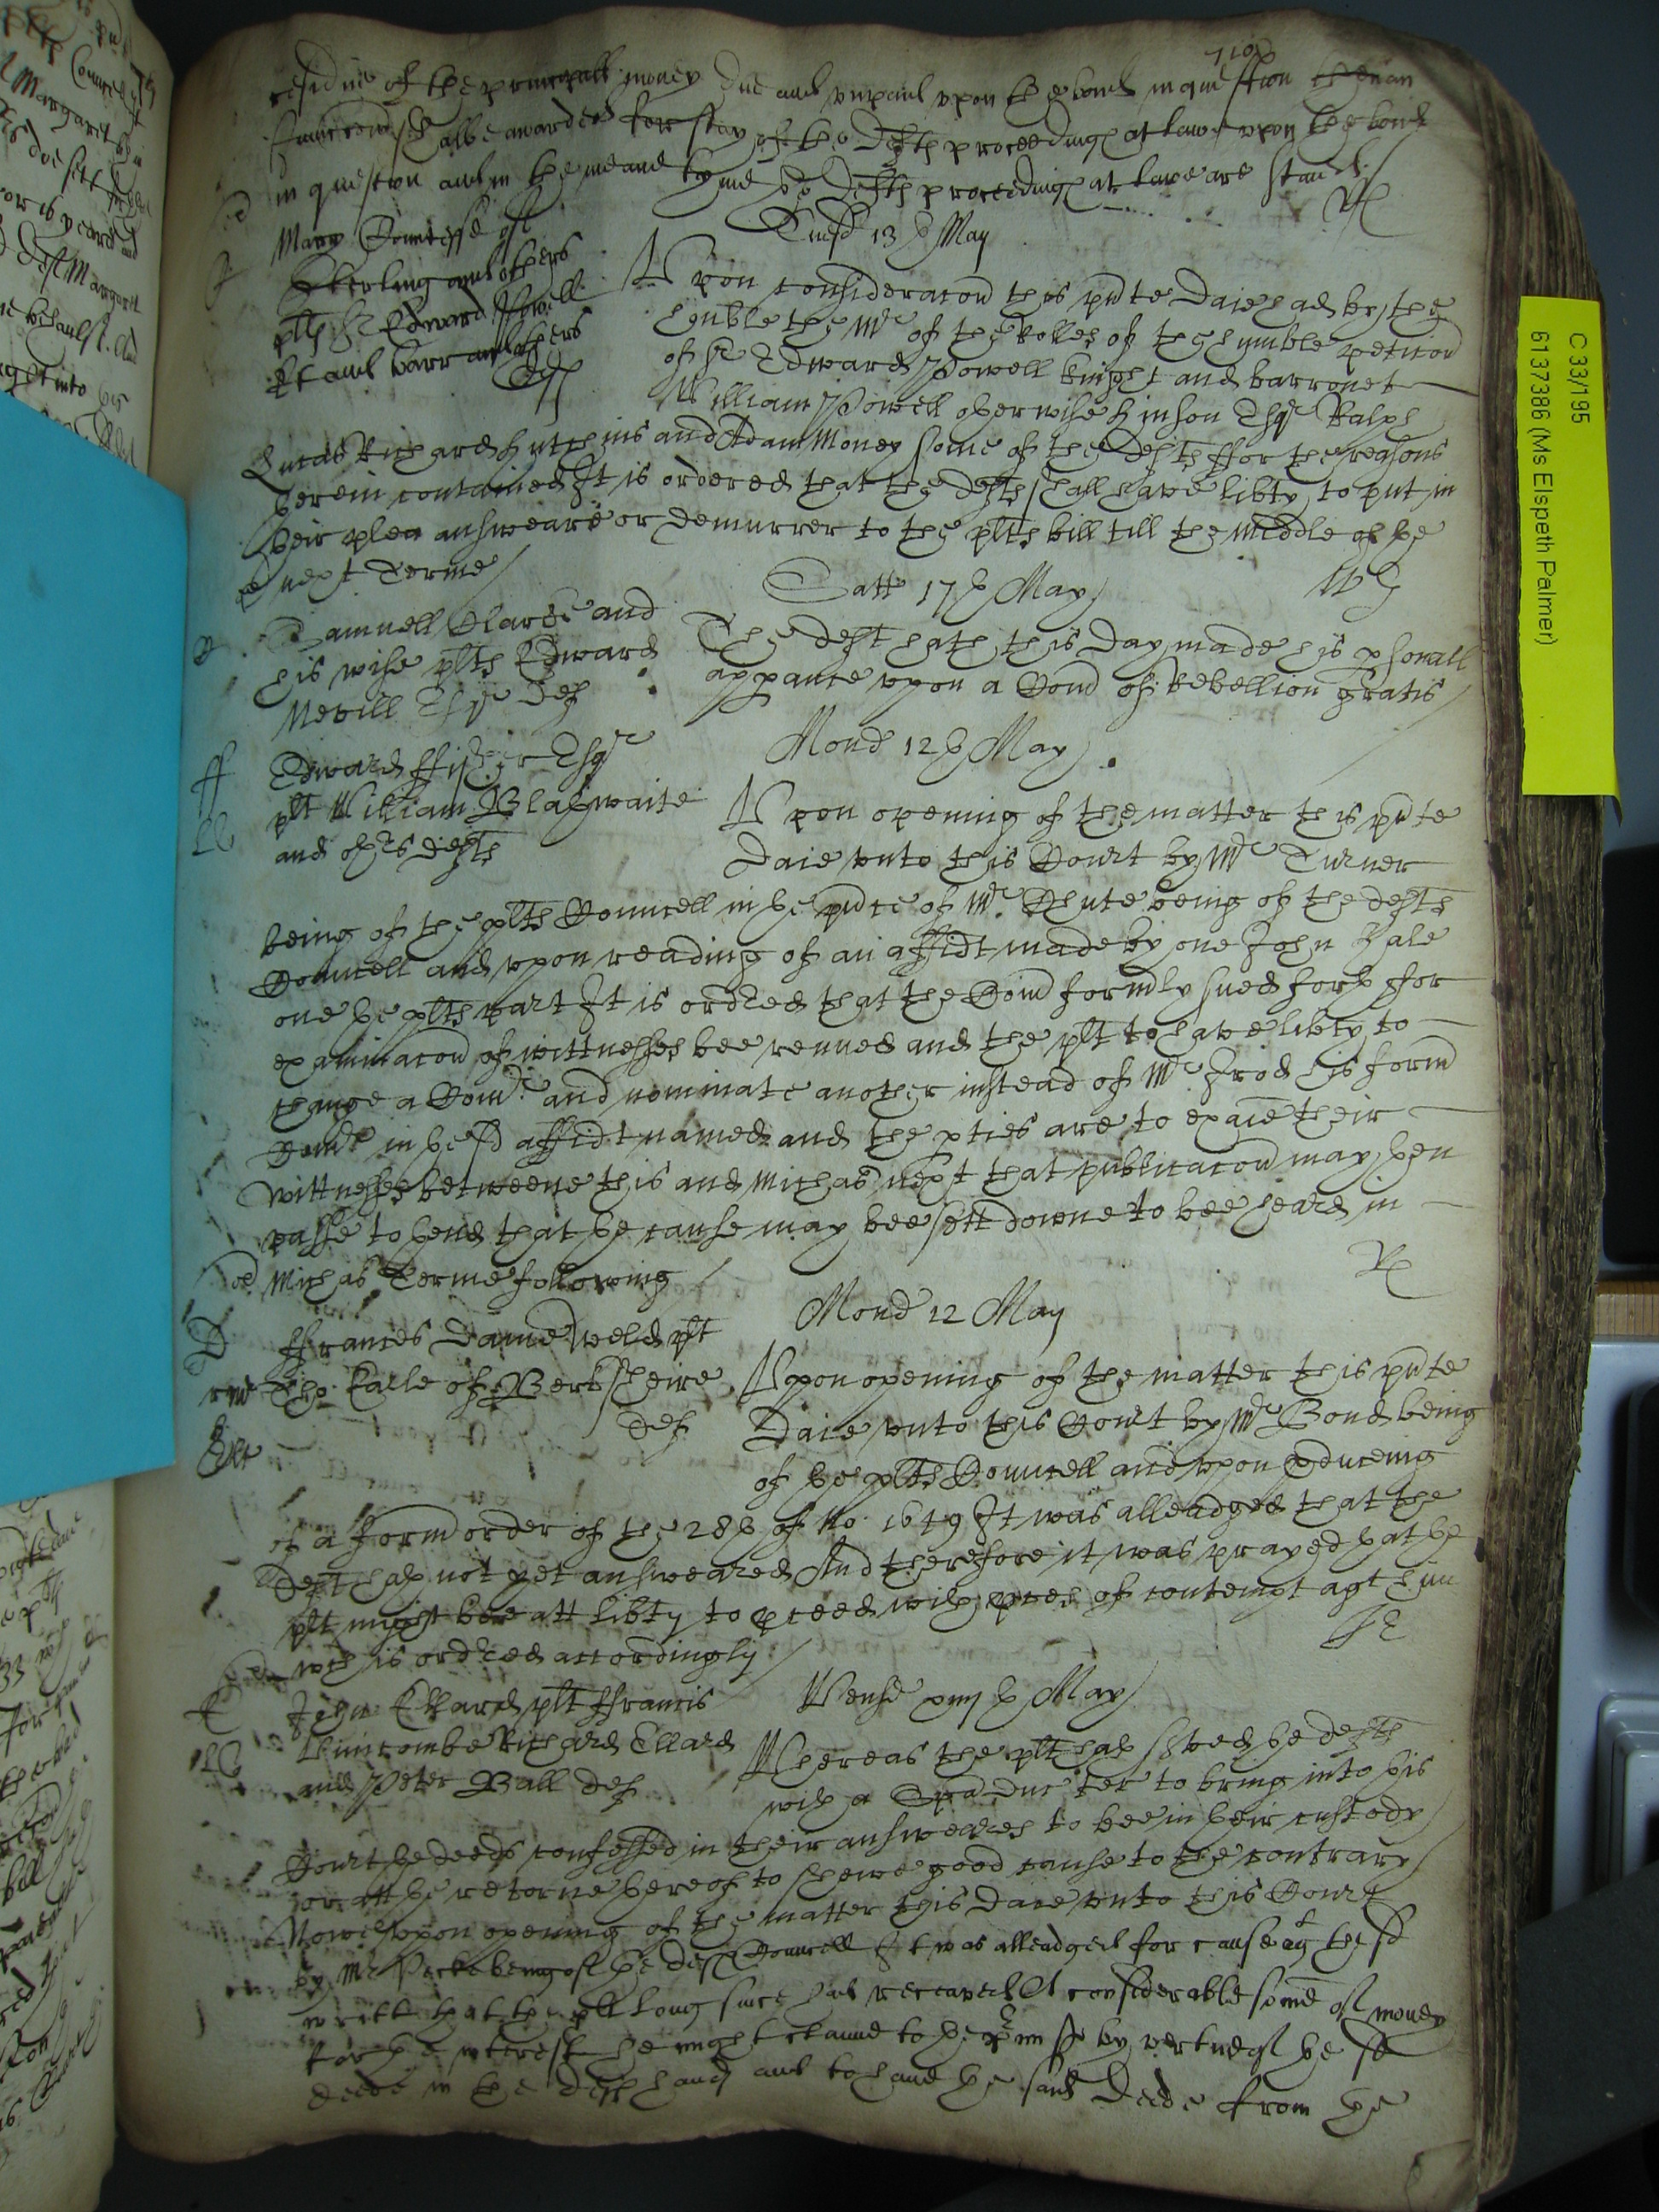 710
residue of the principall money due and unpaid upon the bond in question then an
Iniuncond shalbe awarded for stay of the Defts proceedings at lawe upon the bond
in question and in the meane tyme the Defts proceedings at lawe are staied
Mary Countesse of
Sterling and others
plts Sr Edward Powell
kt and barr and others
Defts
Tuesd 13 th May
Upon consideracon this pnte Daie had by the
honble the Mr of the Rolles of the humble peticon
of Sr Edward Powell knight and barronet
William Powell otherwise Hinson Esqr Ralph
Lucas Richard Hutchins and Adam Money some of the Defts ffor the reasons
therein contained It is ordered that the defts shall have libty to put in
their plea answeare or demurrer to the plts bill till the middle of the
next Terme
Samuell Clarke and
his wife plts Edward
Nevill Esqr Def
Satt 17 th May
The deft hath this Day made his psonall
appance upon a Comd of Rebellion gratis
ff
Edward ffisher Esqr
plt William Blathwaite
and others defts
Mond 12 th May
Upon opening of the matter this pnte
Daie unto this Court by Mr Turner
being of the plts Councell in the pnce of Mr Chute being of the defts
Councell and upon reading of an affidt made by one John Hale
one the plts part It is ordred that the Comd formrly sued forth ffor
examinacon of wittnesses bee renued and the plt to have libty to
change a Comr and nominate another instead of Mr his form
Comr in the sd affidt named and the pties are to exaie their
wittnesses betweene this and Michas next that publicacon may then
passe to thend that the cause may bee sett downe to bee heard in
Michas Terme following
D
ffrances Dame Weld plt
Tho: Earle of Berksheire
Def
Mond 12 May
Upon opening of the matter this pnte
Daie unto this Court by Mr Bond being
of the plts Councell and upon pduceing
of a form order of the 28 th of No: 1649 It was alleadged that the
Deft hath not yet answeared And therefore it was prayed that the
plt might bee att libty to pceed with pces of contempt agt him
wch is ordred accordingly
E
John Ellard plt ffrancis
Richard Ellard
and Peter Ball def
Wensd xiiij th May
Whereas the plt hath served the defts
with a Spa duc tec to bring into this
Court the deeds confessed in their answeares to bee in their custody
or att the retorne thereof to shewe good cause to the contrary
Nowe upon opening of the matter this Daie unto this Court
by Mr being of the Def Councell It was alleadged for cause ag the sd
writt that the plt long since had received A considerable somme of money
for the interest he might claime to the by vertue of the sd
deede in the defts hands and to have the said Deede from the
C 33/195
6137386 (Ms Elspeth Palmer)